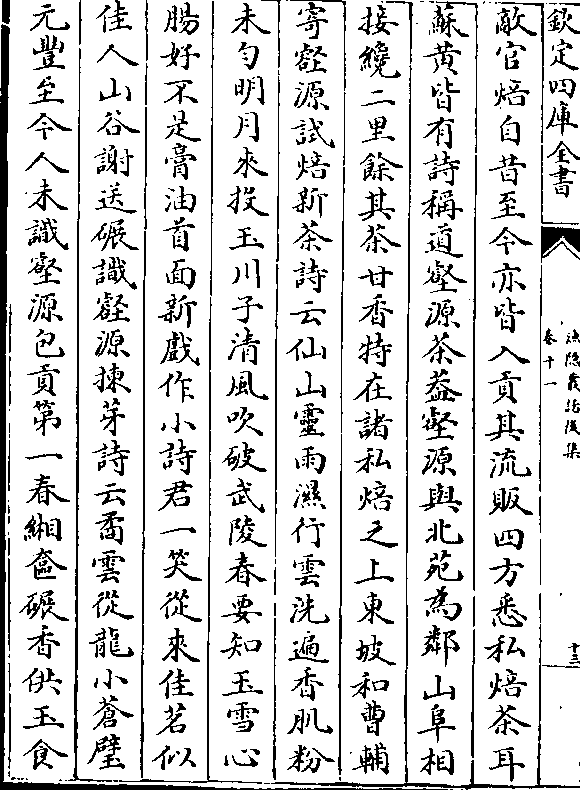 欽定四庫全書
漁隱叢話後集
卷十一
十三
敵官焙自昔至今亦皆入貢其流販四方悉私焙茶耳
蘇黃皆有詩稱道壑源茶蓋壑源與北苑為鄰山阜相
接纔二里餘其茶甘香特在諸私焙之上東坡和曹輔
寄壑源試焙新茶詩云仙山靈雨濕行雲洗遍香肌粉
未勻明月來投玉川子清風吹破武陵春要知玉雪心
腸好不是膏油首面新戲作小詩君一笑從來佳茗似
佳人山谷謝送碾識壑源揀芽詩云矞雲從龍小蒼璧
元豐至今人未識壑源包貢第一春緗奩碾香供玉食